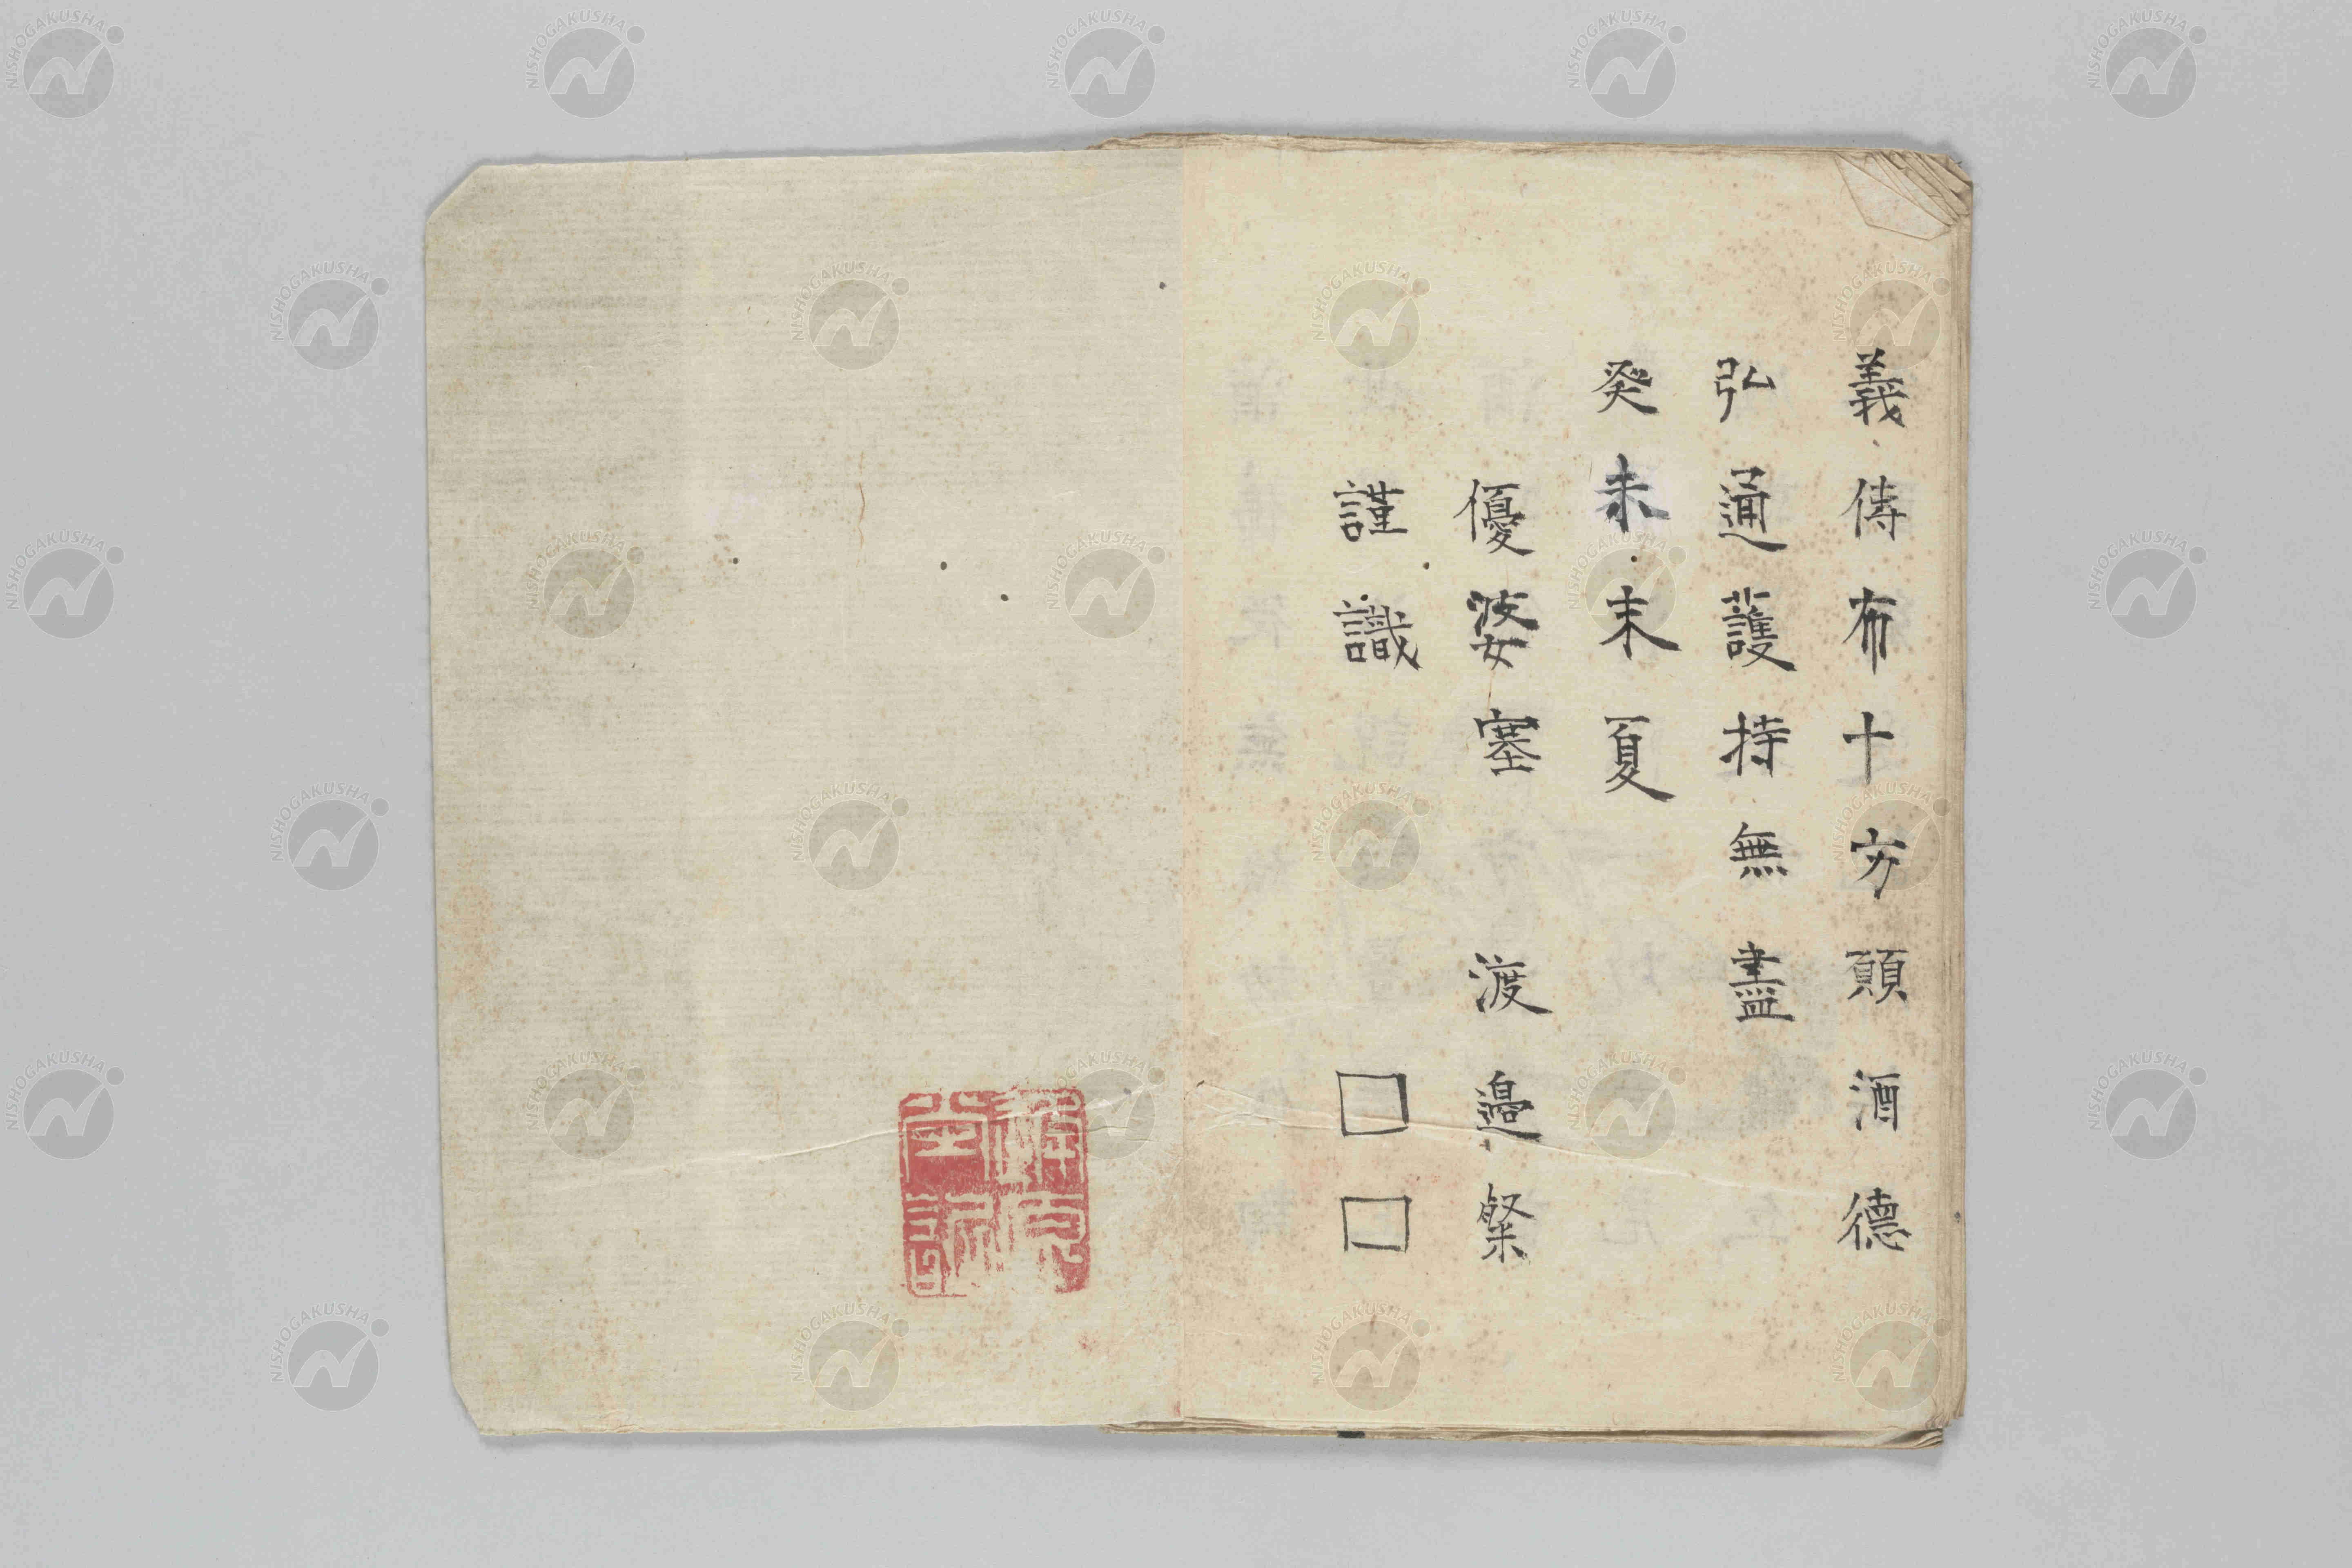 義傳布十方願酒德
弘通護持無盡
癸未末夏
優婆塞 渡邉粲
謹識 □ □
NISHOGAKUSHA